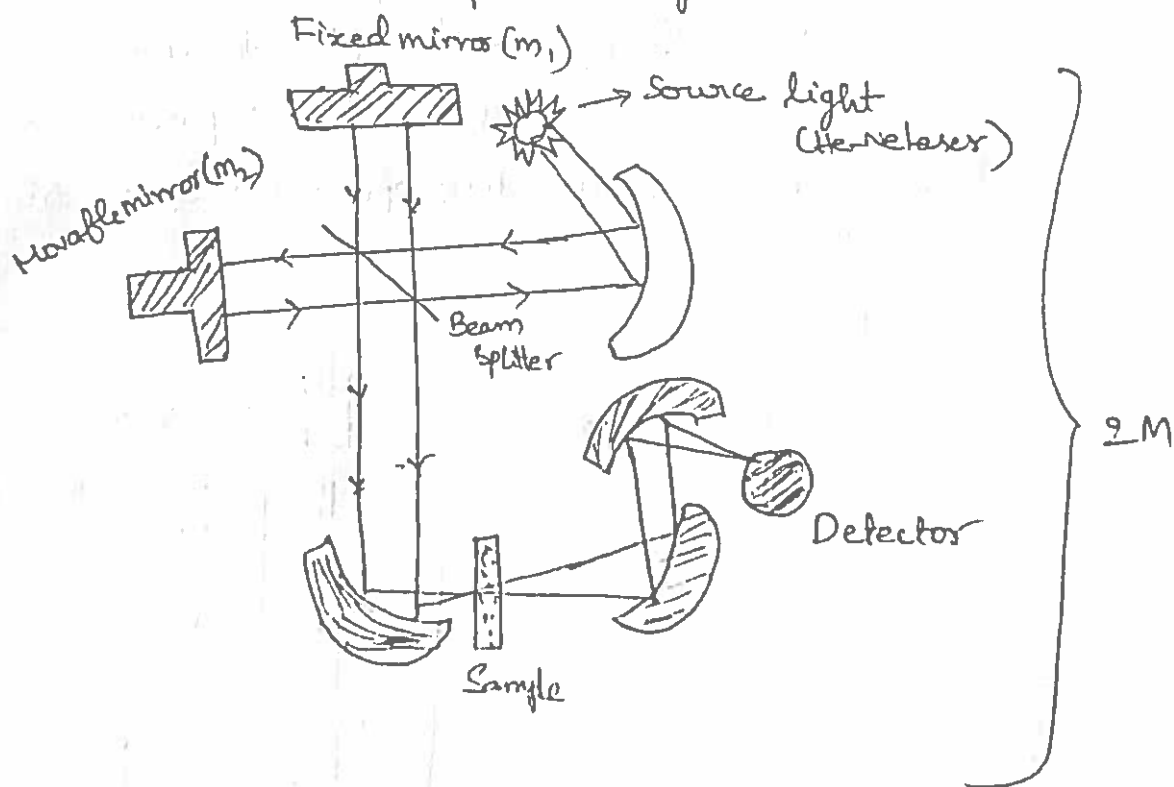 Fixed mirror (m1)
Source light
(He-Ne laser)
Movable mirror (m2)
Beam
splitter
2M
Detector
Sample